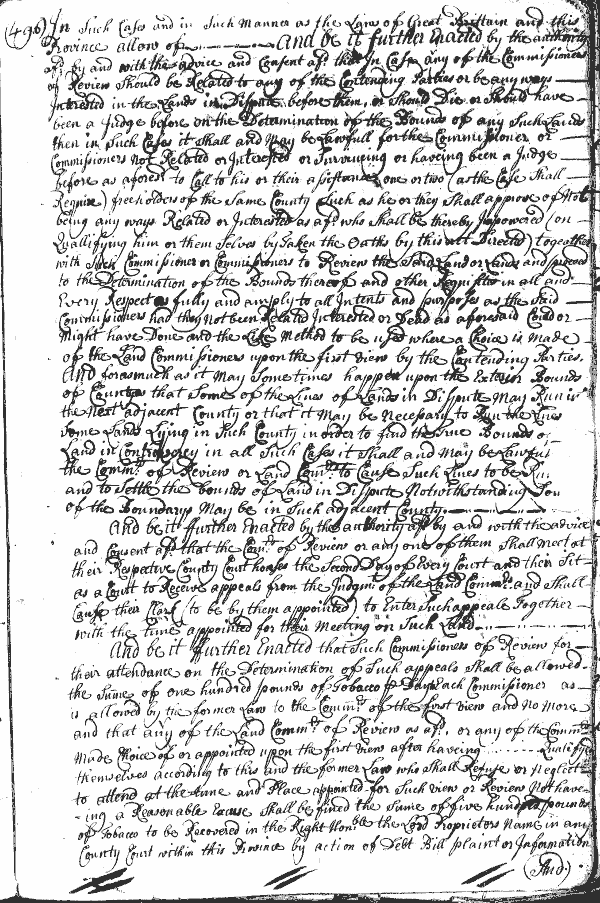 (496) In Such Cases and in Such Manner as the Laws of Great Brittain and this
Province allow of And be it further Enacted by the authority
afd. by and with the advice and Consent afd. that In Case any of the Commissioners
of Review Should be Related to any of the Contending Parties or be any ways
Interested in the Lands in Dispute before them, or Should Die or Should have
been a Judge before on the Determination of the Bounds of any Such Lands
then in Such Cases it Shall and May be Lawfull for the Commissioner or
Commissioners Not Related or Interested or Surviveing or haveing been a Judge
before as aforesd. to Call to his or their assistance one or two (as the Case Shall
Require) freeholders of the Same County Such as he or they Shall appose of Not
being any ways Related or Interested as afd. who Shall be thereby Impowered (on
Quallifying him or them Selves by Taken the Oaths by this act Directed) together
with Such Commissioner or Commissioners to Review the Said Land or Lands and proceed
to the Determination of the Bounds thereof and other Requisites in all and
Every Respect as fully and amply to all Intents and purposes as the Said
Commissioners had they Not been Related Interested or Dead as aforesaid Coud or
Might have Done and the Like Method to be used where a Choice is made
of the Land Commissioners upon the first View by the Contending Parties.
And forasmuch as it May Sometimes happen upon the Exterior Bounds
of Countys that Some of the Lines of Lands in Dispute May Run in
the Next adjacent County or that it May be Necessary to Run the Lines
Some Lands Lying in Such County in order to find the true Bounds of
Land in Controversy in all Such Cases it Shall and May be Lawfull
the Commrs. of Review or Land Comrs. to Cause Such Lines to be Run
and to Settle the bounds of Land in Dispute Notwithstanding
of the Boundarys May be in Such adjacent County
And be it further Enacted by the authority afd. by and with the advice
and Consent afd. that the Comrs. of Review or any one of them Shall Meet at
their Respective County Court houses the Second Day of Every Court and their Sit
as a Court to Receive appeals from the Judgmt. of the Land Commrs. and Shall
Cause their Clark (to be by them appointed) to Enter Such appeale Together
with the time appointed for their Meeting on Such Land
And be it further Enacted that Such Commissioners of Review for
their attendance on the Determination of Such appeals Shall be allowed
the Sume of one hundred pounds of Tobacco p Day Each Commissioner as
is allowed by the former Law to the Commrs. of the first View and No More
and that any of the Land Commrs. of Review as afd. or any of the Commrs.
Made Choice of or appointed upon the first View after haveing Qualifyed
themselves according to this and the former Law who Shall Refuse or Neglect
to attend at the time and Place appointed for Such View or Review Not have
-ing a Reasonable Excuse Shall be fined the Sume of five hundred pounds
of Tobacco to be Recovered in the Right Honble. the Lord Proprietors Name in any
County Court within this Province by action of Debt Bill plaint or Information
(And)